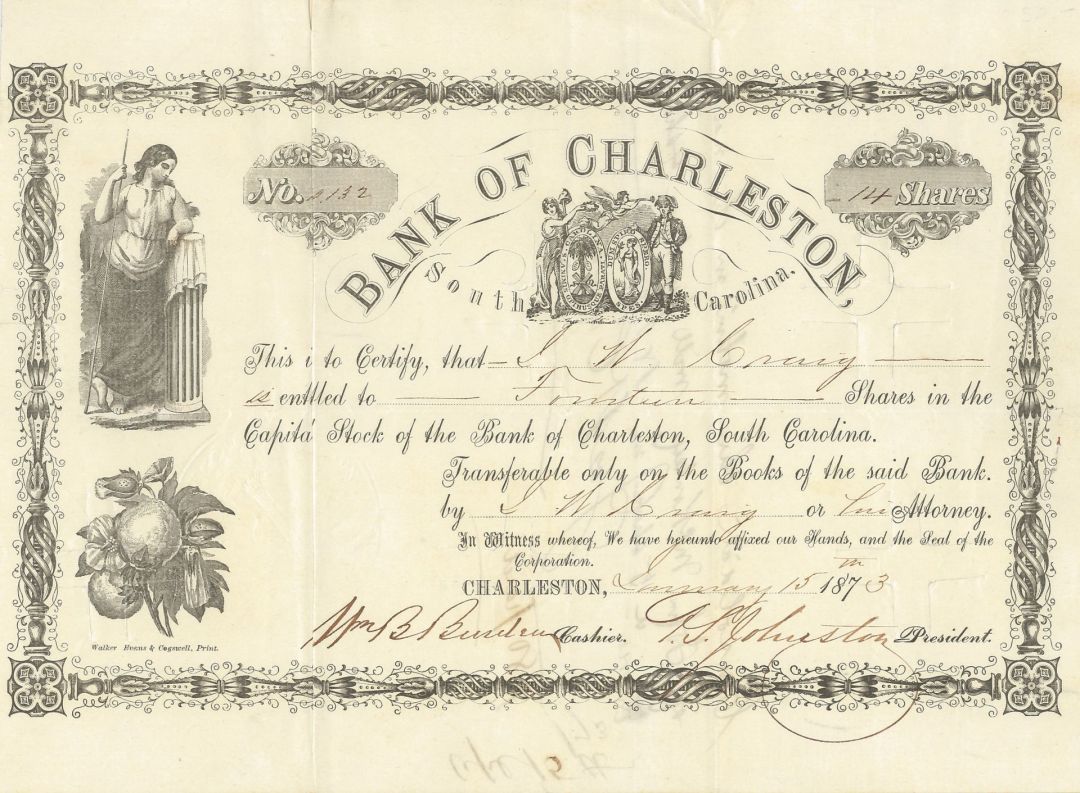 BANK OF CHARLESTON,
South Carolina.
No. 132
14 Shares
This i to Certify, that J W Craig
is entlled to Fourteen Shares in the
Capita Stock of the Bank of Charleston, South Carolina.
Transferable only on the Books of the said Bank.
by J W Craig or his Attorney.
In Witness whereof, We have hereunto affixed our Hands, and the Seal of the
Corporation.
CHARLESTON, January 15th 1873
Wm B Burden Cashier. T. S. Johnston President.
Walker Evans & Cogswell, Print.